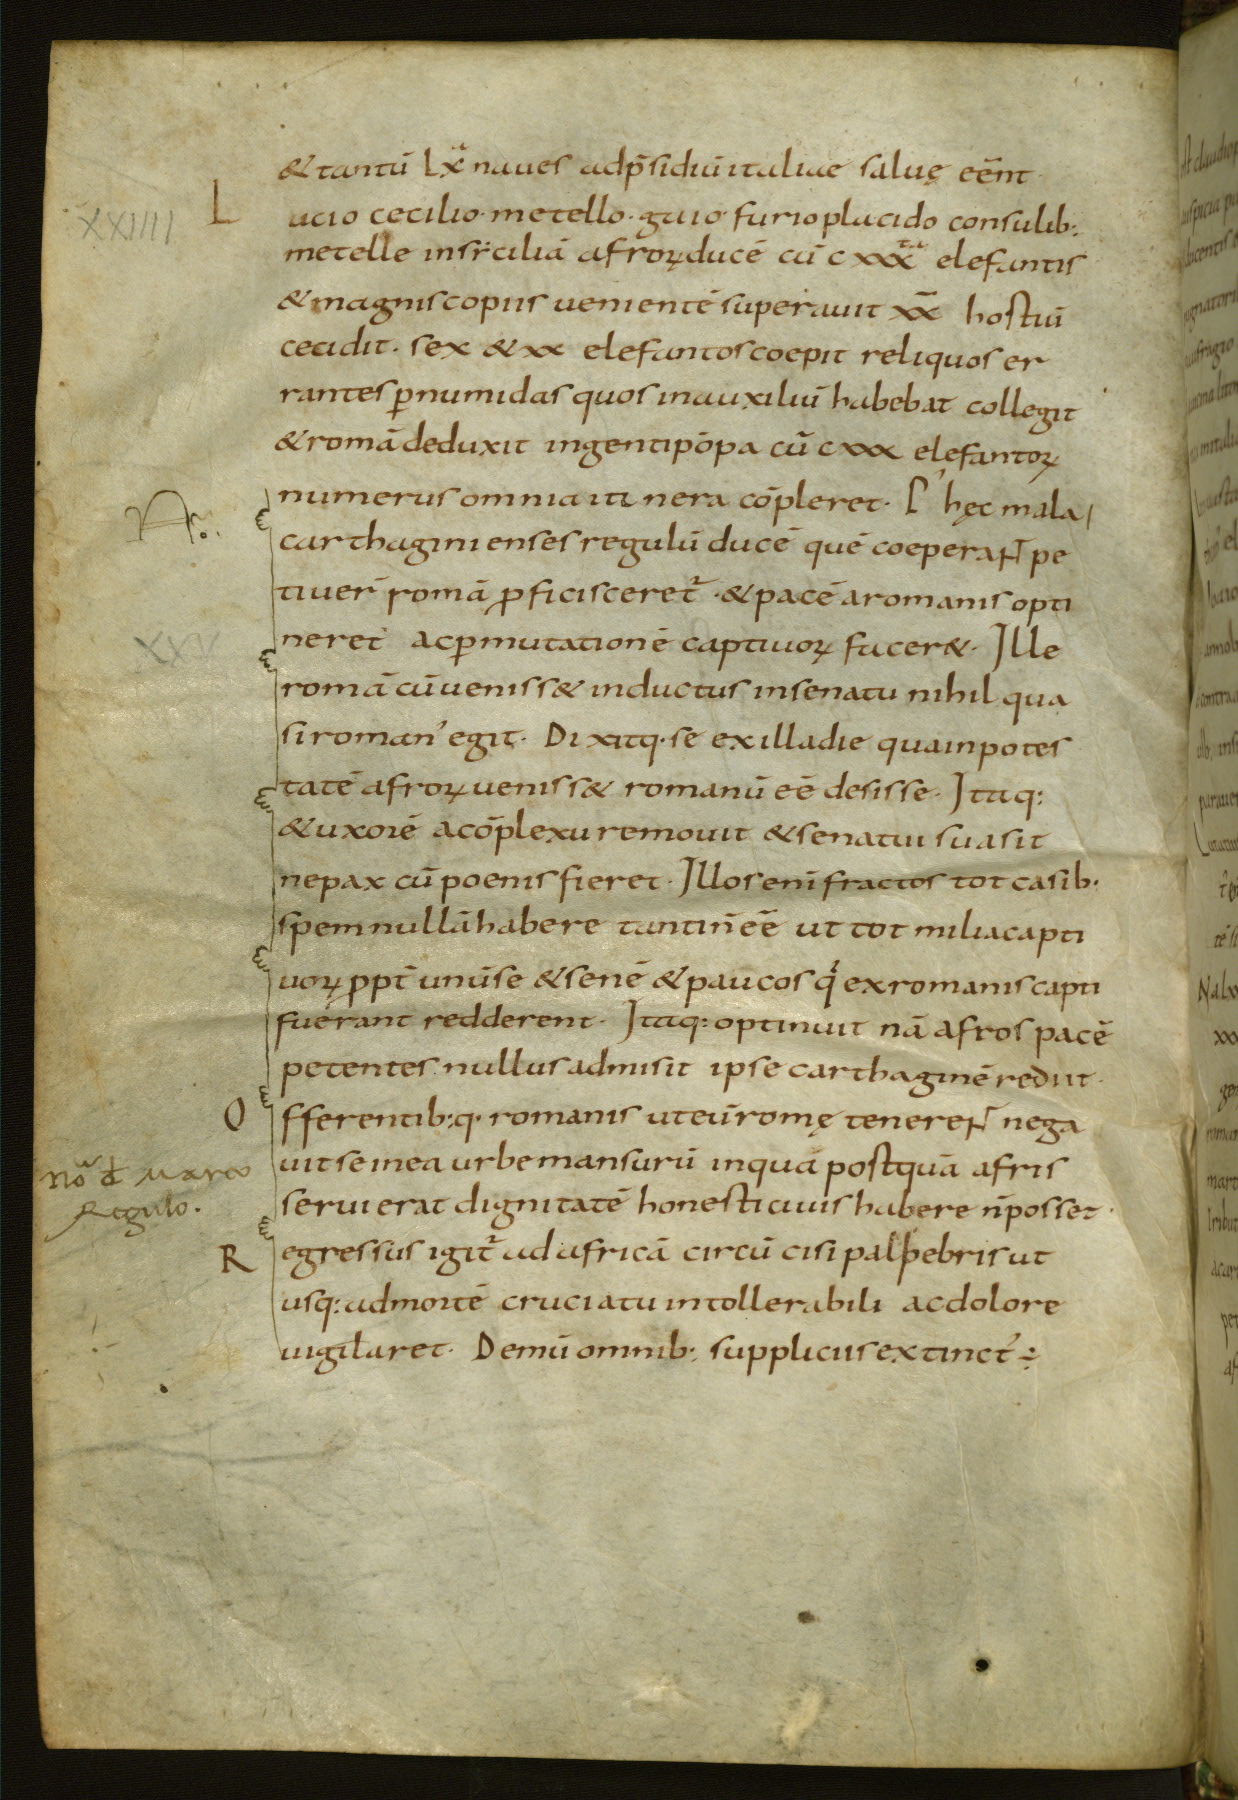 & tantū Lxͣ naues adp̄sidiū italiae saluę eēnt
XXIIII
Lucio cecilio· metello· gaio· furio placido consulib:
metelle insiciliā afroꝝ ducē cū c xxx elefantis
& magnis copiis uenientē superauit x̄x̄ hostiū
cecidit· sex & xx elefantos coepit reliquos er
rantes ꝑ numidas quos inauxiliū habebat collegit
& romā deduxit ingenti pōpa cū c xxx elefantoꝝ
numerus omnia itinera cōpleret· P' hęc mala
carthaginienses regulū ducē quē coeperaNT pe
tiuer̄ romā ꝓficisceret᷑ · & pacē aromanis opti
neret acꝑmutationē captiuoꝝ facer&· Ille
XXV
romā cū ueniss& inductus insenatu nihil qua
si roman' egit· Dixitq· se exilladie qua inpotes
tatē afroꝝ ueniss& romanū eē desisse· Itaq:
& uxorē acōplexu remouit & senatui suasit
nepax cū poenis fieret· Illos enī fractos tot casib·
spem nullā habere tanti n̄ eē ut tot milia capti
uoꝝ ꝓpt̄ unū se & senē & paucos qͥ exromanis capti
fuerant redderent· Itaq: optinuit nā afros pacē
petentes nullus admisit ipse carthaginē rediit·
Offerentib:q· romanis uteū romę tenereNT nega
uit se inea urbe mansurū inqua postquā afris
seruierat dignitatē honesti ciuis habere n̄ posset·
Noͣ đ Marco
Regulo.
Regressus igit᷑ ad africā circū cisi palpebris ut
usq: admortē cruciatu intollerabili acdolore
uigilaret· Demū omnib: suppliciis extinct'